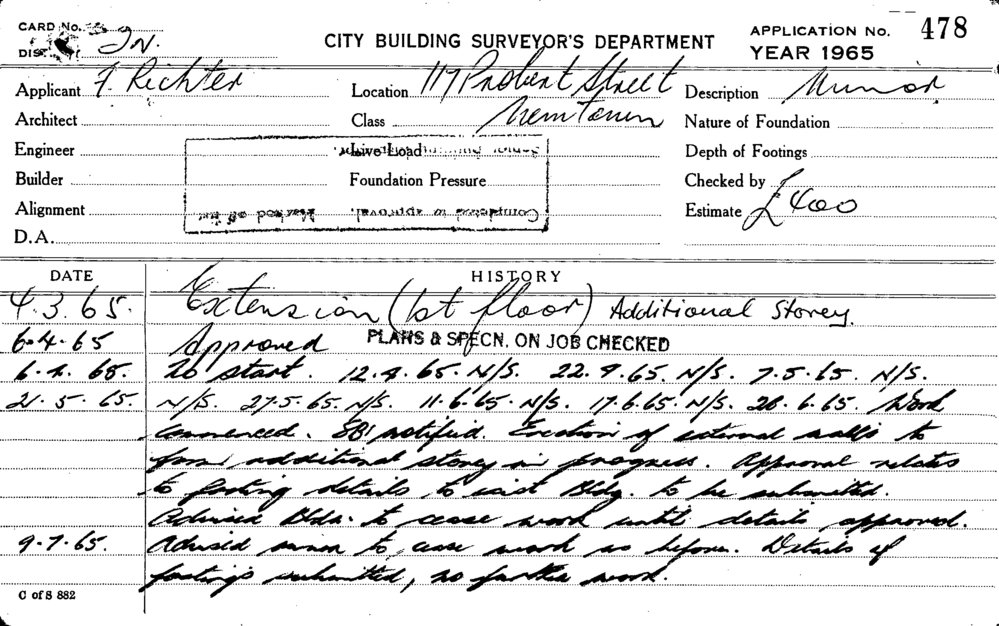 CARD No.
DIS
In.
CITY BUILDING SURVEYOR'S DEPARTMENT
APPLICATION No. 478
YEAR 1965
Applicant F. Richter
Location 117 Probert Street
Description Minor
Architect
Class Newtown
Nature of Foundation
Engineer
Live Load
Depth of Footings
Builder
Foundation Pressure
Checked by
Alignment
Completed to approval. Marked off the
Estimate £400
D.A.
DATE HISTORY
4.3.65. Extension (1st floor) Additional Storey.
6.4.65 Approved PLANS & SPECN. ON JOB CHECKED
6.4.65. To start. 12.4.65. N/S. 22.4.65. N/S. 7.5.65. N/S.
21.5.65. N/S. 27.5.65. N/S. 11.6.65. N/S. 17.6.65. N/S. 28.6.65. Work
commenced. SBI notified. Erection of external walls to
form additional storey in progress. Approval relates
to footing details to exist Bldg. to be submitted.
Advised Bldr. to cease work until details approved.
9.7.65. Advised owner to cease work as before. Details of
footings submitted, no further work.
C of S 882